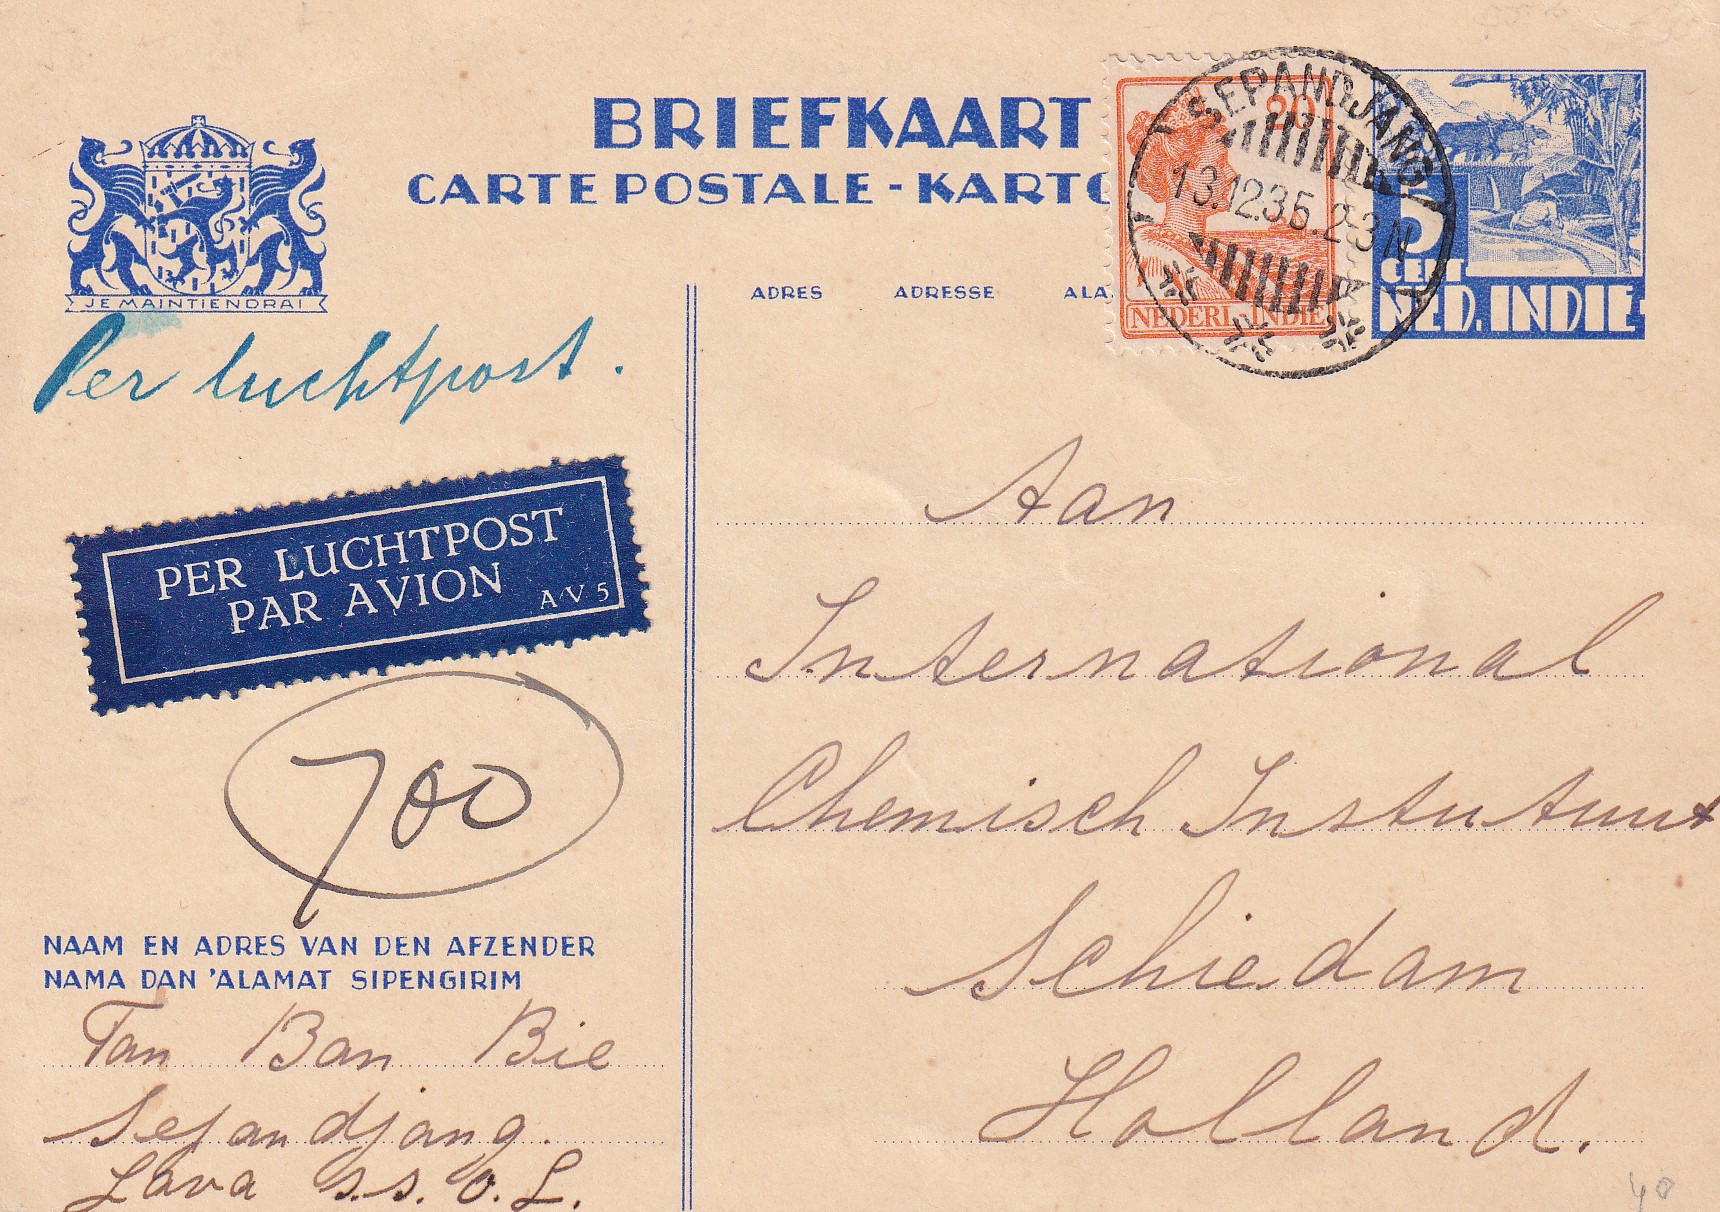 BRIEFKAART
CARTE POSTALE - KARTO
JE MAINTIENDRAI
ADRES ADRESSE ALA
20
NEDERL-INDIË
SEPANDJANG
13.12.35.2-3N
5
CENT
NED. INDIE
Per luchtpost.
PER LUCHTPOST
PAR AVION
A/V 5
700
NAAM EN ADRES VAN DEN AFZENDER
NAMA DAN 'ALAMAT SIPENGIRIM
Tan Ban Bie
Sepandjang.
Java s.s. o.L.
Aan
International
Chemisch Instutuut
Schiedam
Holland.
40